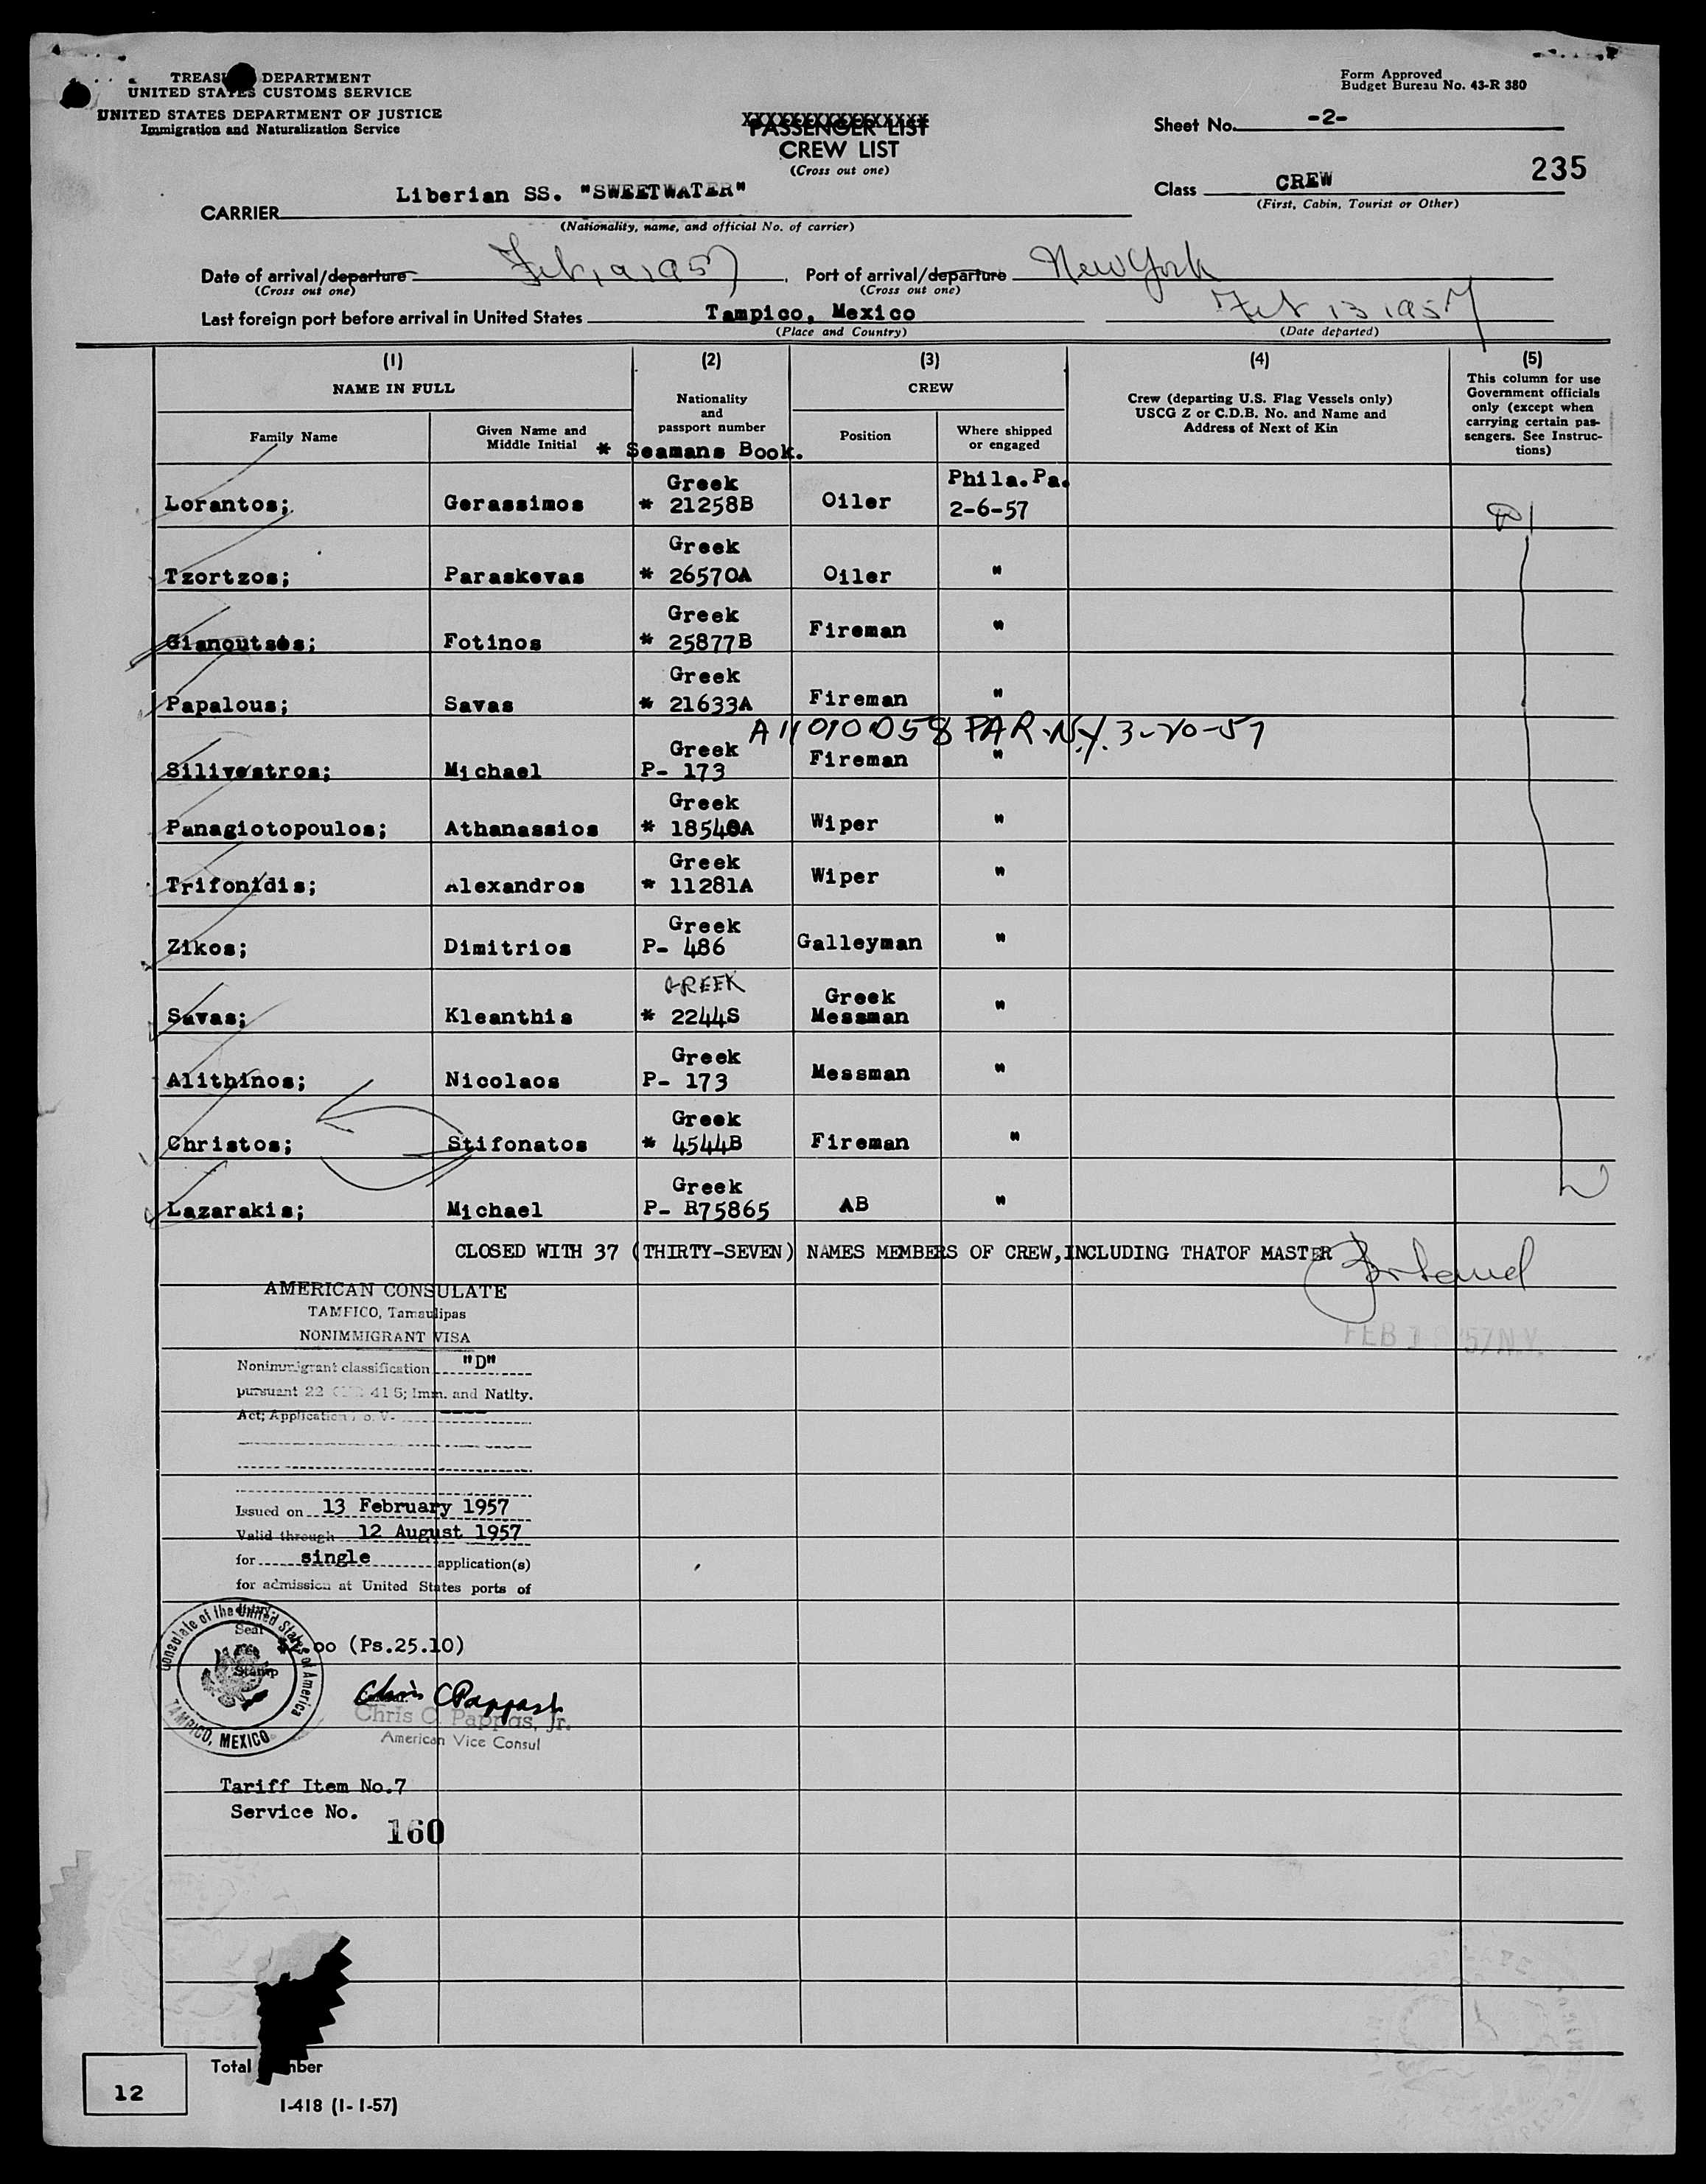 TREAS DEPARTMENT
UNITED STATES CUSTOMS SERVICE
UNITED STATES DEPARTMENT OF JUSTICE
Immigration and Naturalization Service
PASSENGER LIST
CREW LIST
(Cross out one)
Form Approved
Budget Bureau No. 43-R 380
Sheet No. -2-
235
Class CREW
(First, Cabin, Tourist or Other)
CARRIER Liberian SS. "SWEETWATER"
(Nationality, name, and official No. of carrier)
Date of arrival/departure Feb, 19 1957
(Cross out one)
Port of arrival/departure New York
(Cross out one)
Last foreign port before arrival in United States Tampico, Mexico
(Place and Country)
Feb 13 1957
(Date departed)
(1) (2) (3) (4) (5)
NAME IN FULL
Family Name
Given Name and
Middle Initial
Nationality
and
passport number
* Seamans Book.
CREW
Position
Where shipped
or engaged
Crew (departing U.S. Flag Vessels only)
USCG Z or C.D.B. No. and Name and
Address of Next of Kin
This column for use
Government officials
only (except when
carrying certain pas-
sengers. See Instruc-
tions)
Greek Phila.Pa.
Lorantos; Gerassimos * 21258B Oiler 2-6-57
Greek
Tzortzos; Paraskevas * 26570A Oiler "
Greek
Gianoutsos; Fotinos * 25877B Fireman "
Greek
Papalous; Savas * 21633A Fireman "
A11010058 PAR. N.Y. 3-20-57
Greek
Silivestros; Michael P- 173 Fireman "
Greek
Panagiotopoulos; Athanassios * 18540A Wiper "
Greek
Trifonidis; Alexandros * 11281A Wiper "
Greek
Zikos; Dimitrios P- 486 Galleyman "
GREEK Greek
Savas; Kleanthis * 2244S Messman "
Greek
Alithinos; Nicolaos P- 173 Messman "
Greek
Christos; Stifonatos * 4544B Fireman "
Greek
Lazarakis; Michael P- R75865 AB "
CLOSED WITH 37 (THIRTY-SEVEN) NAMES MEMBERS OF CREW,INCLUDING THATOF MASTER
AMERICAN CONSULATE
TAMPICO, Tamaulipas
NONIMMIGRANT VISA
Nonimmigrant classification "D"
pursuant 22 CFR 41 5; Imm. and Natlty.
Act; Application No. V-
Issued on 13 February 1957
Valid through 12 August 1957
for single application(s)
for admission at United States ports of
Consulate of the United States of America
TAMPICO, MEXICO
Seal
Stamp
.00 (Ps.25.10)
Chris C Pappas Jr
Chris C. Pappas, Jr.
American Vice Consul
Tariff Item No.7
Service No.
160
Total
12
I-418 (1-1-57)